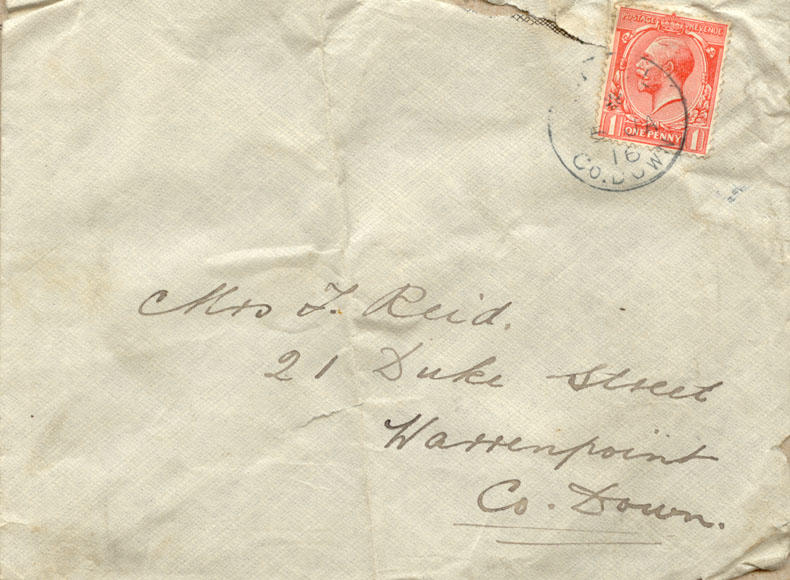 POSTAGE REVENUE
1 ONE PENNY 1
16
Co. DOWN
Mrs F. Reid.
21 Duke Street
Warrenpoint
Co. Down.